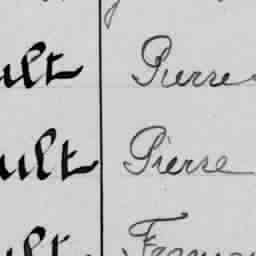 ult Pierre
ult Pierre
ult